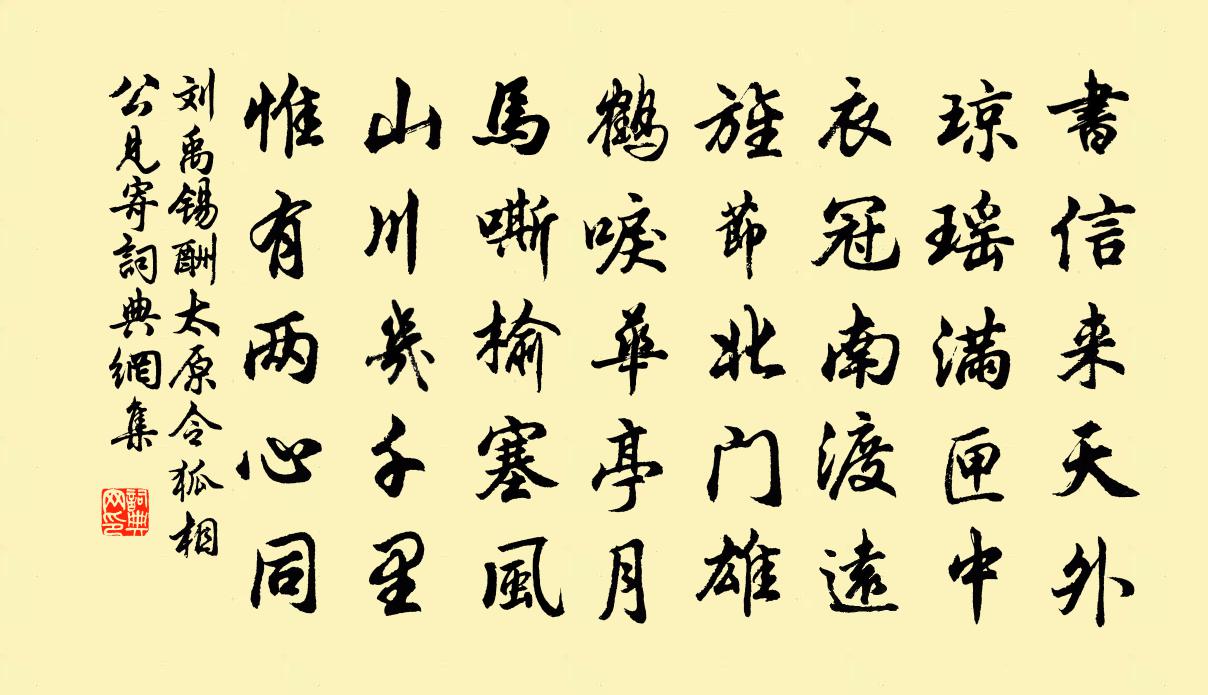 書信来天外
琼瑶满匣中
衣冠南渡遠
旌節北门雄
鹤唳華亭月
馬嘶榆塞風
山川幾千里
惟有两心同
刘禹锡酬太原令狐相
公見寄詞典網集
詞典
网印